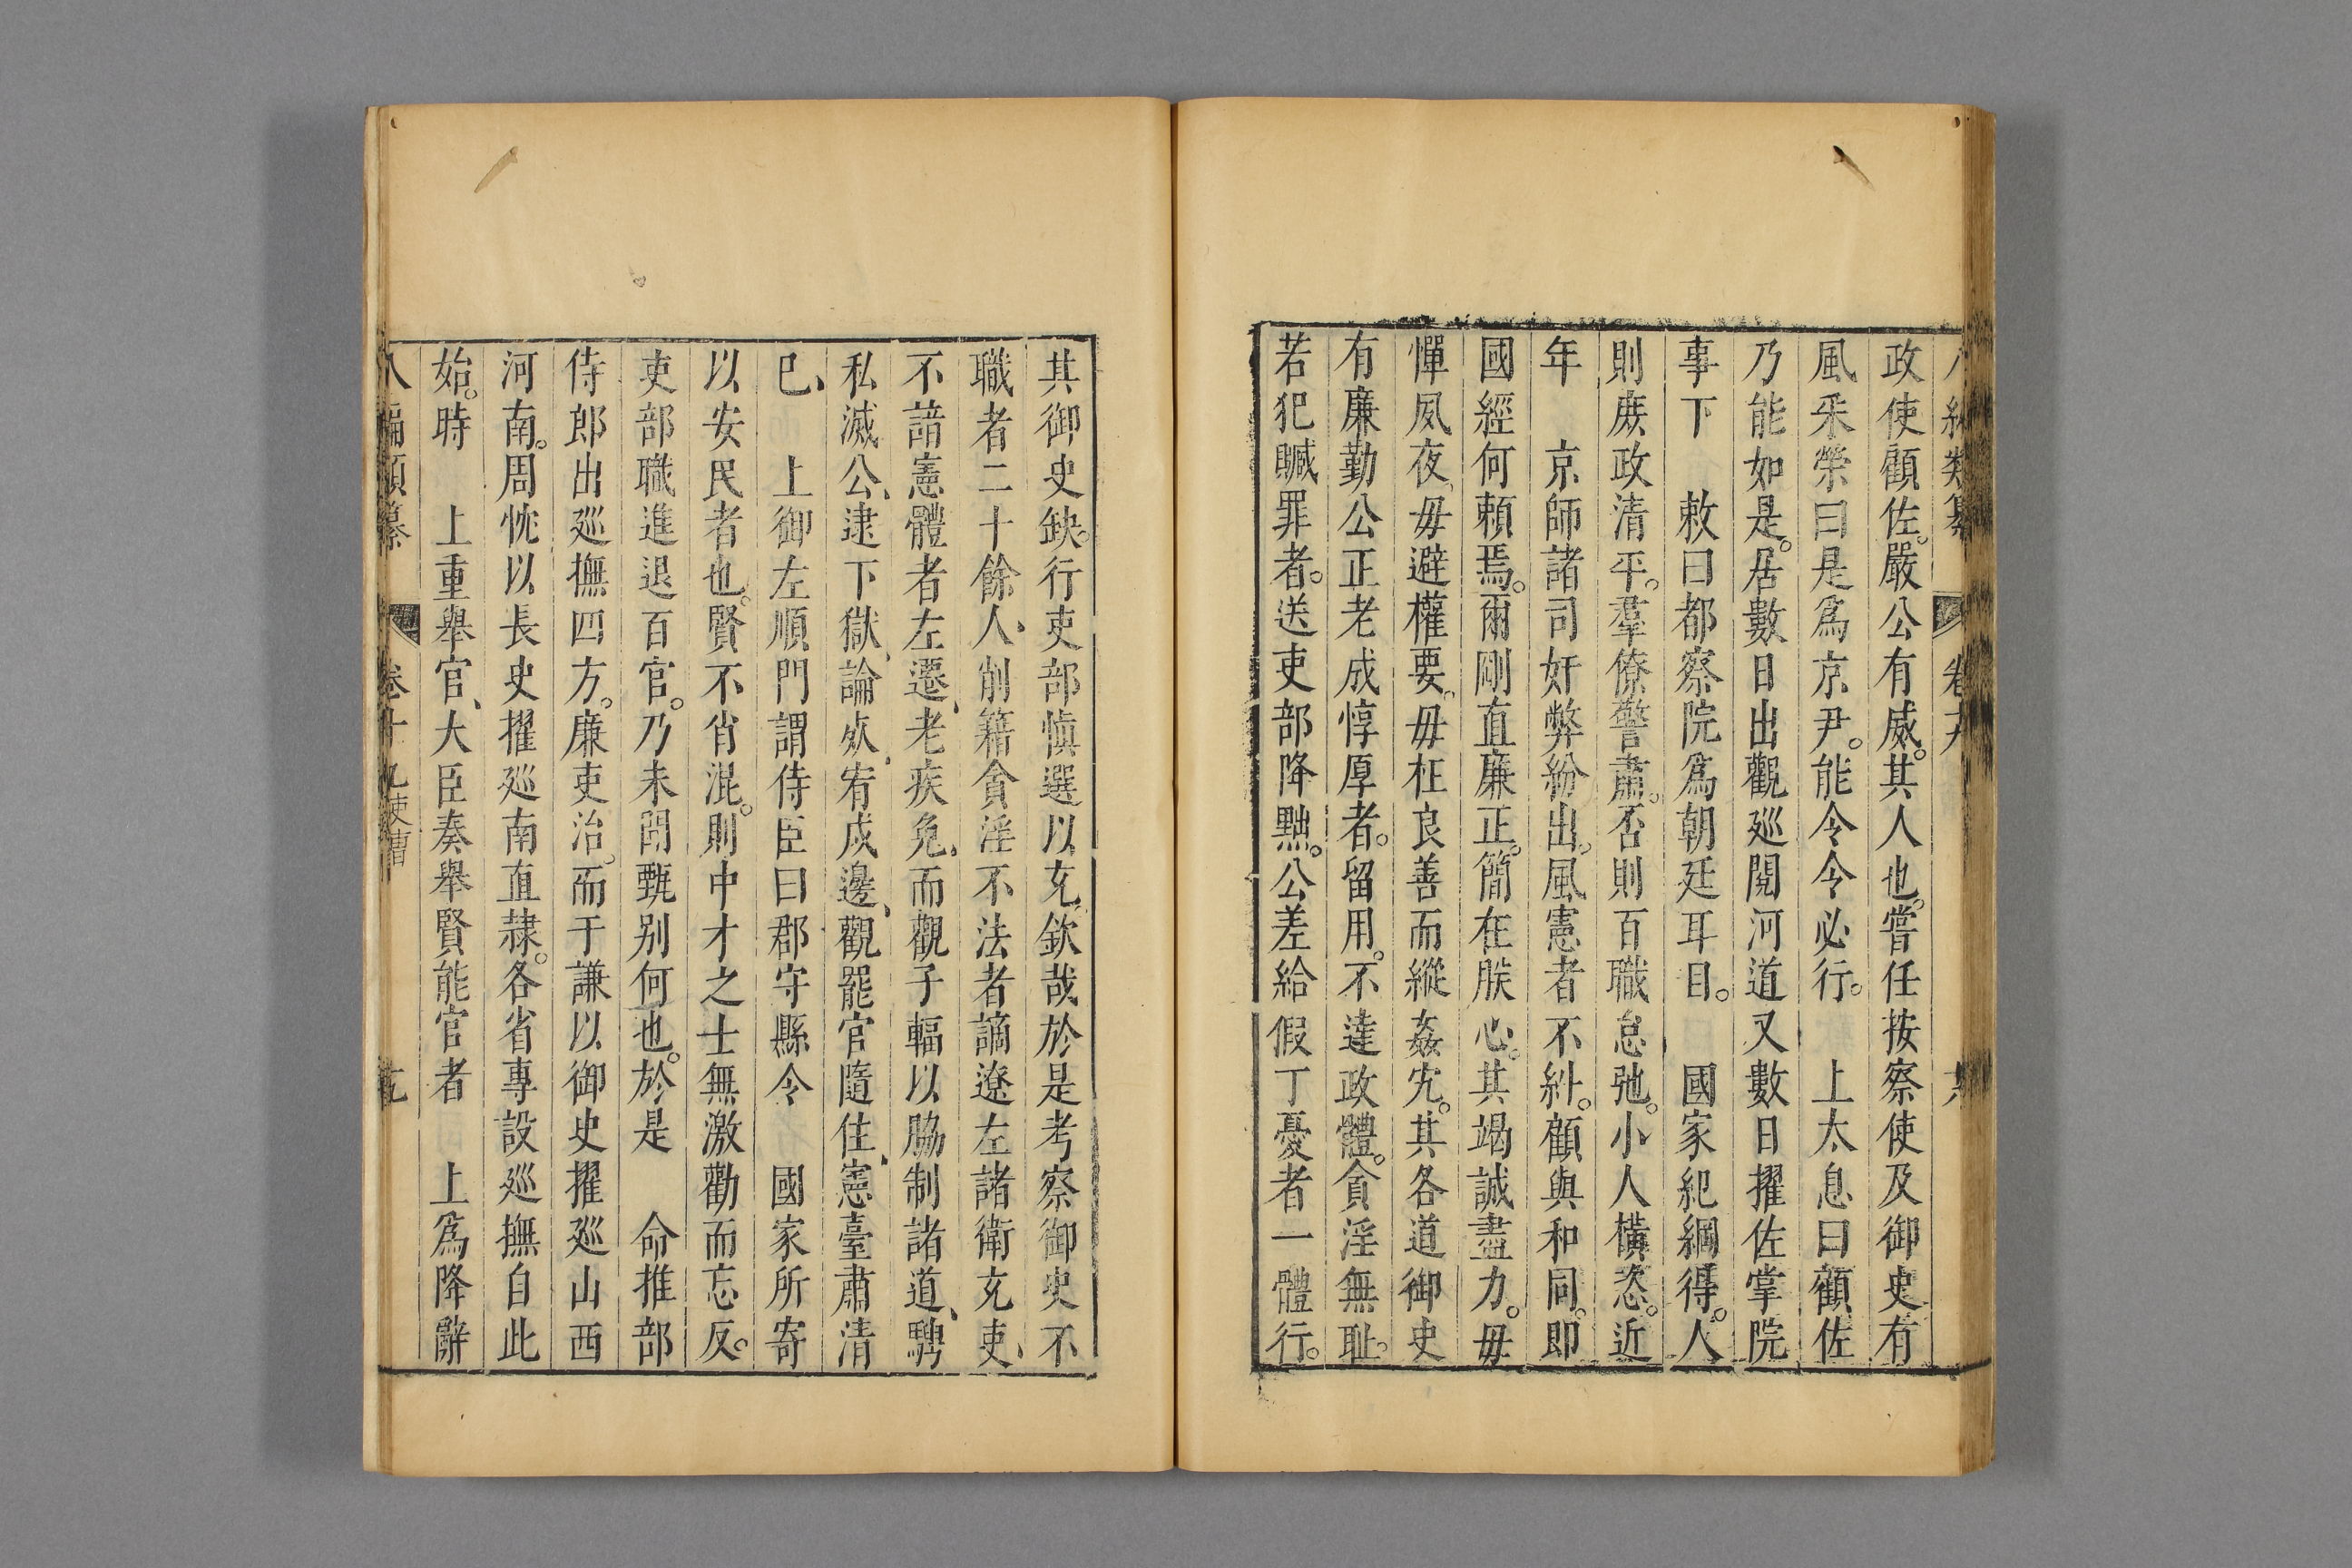 政使顧佐。嚴公有威。其人也。嘗任按察使及御史有
風采榮曰是爲京尹。能令令必行。　上太息曰顧佐
乃能如是。居數日出觀廵閱河道又數日擢佐掌院
事下　敕曰都察院爲朝廷耳目。　國家紀綱得人。
則庻政清平。羣僚警肅。否則百職怠弛。小人橫恣。近
年　京師諸司奸弊紛出。風憲者不糾。顧與和同。即
國經何頼焉。爾剛直廉正。簡在朕心。其竭誠盡力。毋
憚夙夜、毋避權要。毋枉良善而縱姦宄。其各道御史
有廉勤公正老成惇厚者。留用。不達政體。貪淫無耻。
若犯贓罪者。送吏部降黜。公差給假丁憂者一體行。
其御史缺。行吏部慎選以充。欽哉於是考察御史不
職者二十餘人、削籍貪淫不法者謫遼左諸衛充吏、
不諳憲體者左遷、老疾免、而觀子輻以脇制諸道、騁
私滅公、逮下獄、論处、宥戍邊、觀罷官隨住、憲臺肅清
巳、　上御左順門謂侍臣曰郡守縣令　國家所寄
以安民者也。賢不肖混。則中才之士無激勸而忘反。
吏部職進退百官。乃未聞甄别何也。於是　命推部
侍郎出廵撫四方。廉吏治。而于謙以御史擢廵山西
河南。周忱以長史擢廵南直隷。各省專設廵撫自此
始。時　上重舉官、大臣奏舉賢能官者　上爲降辭
八編類纂　卷十九　吏曹